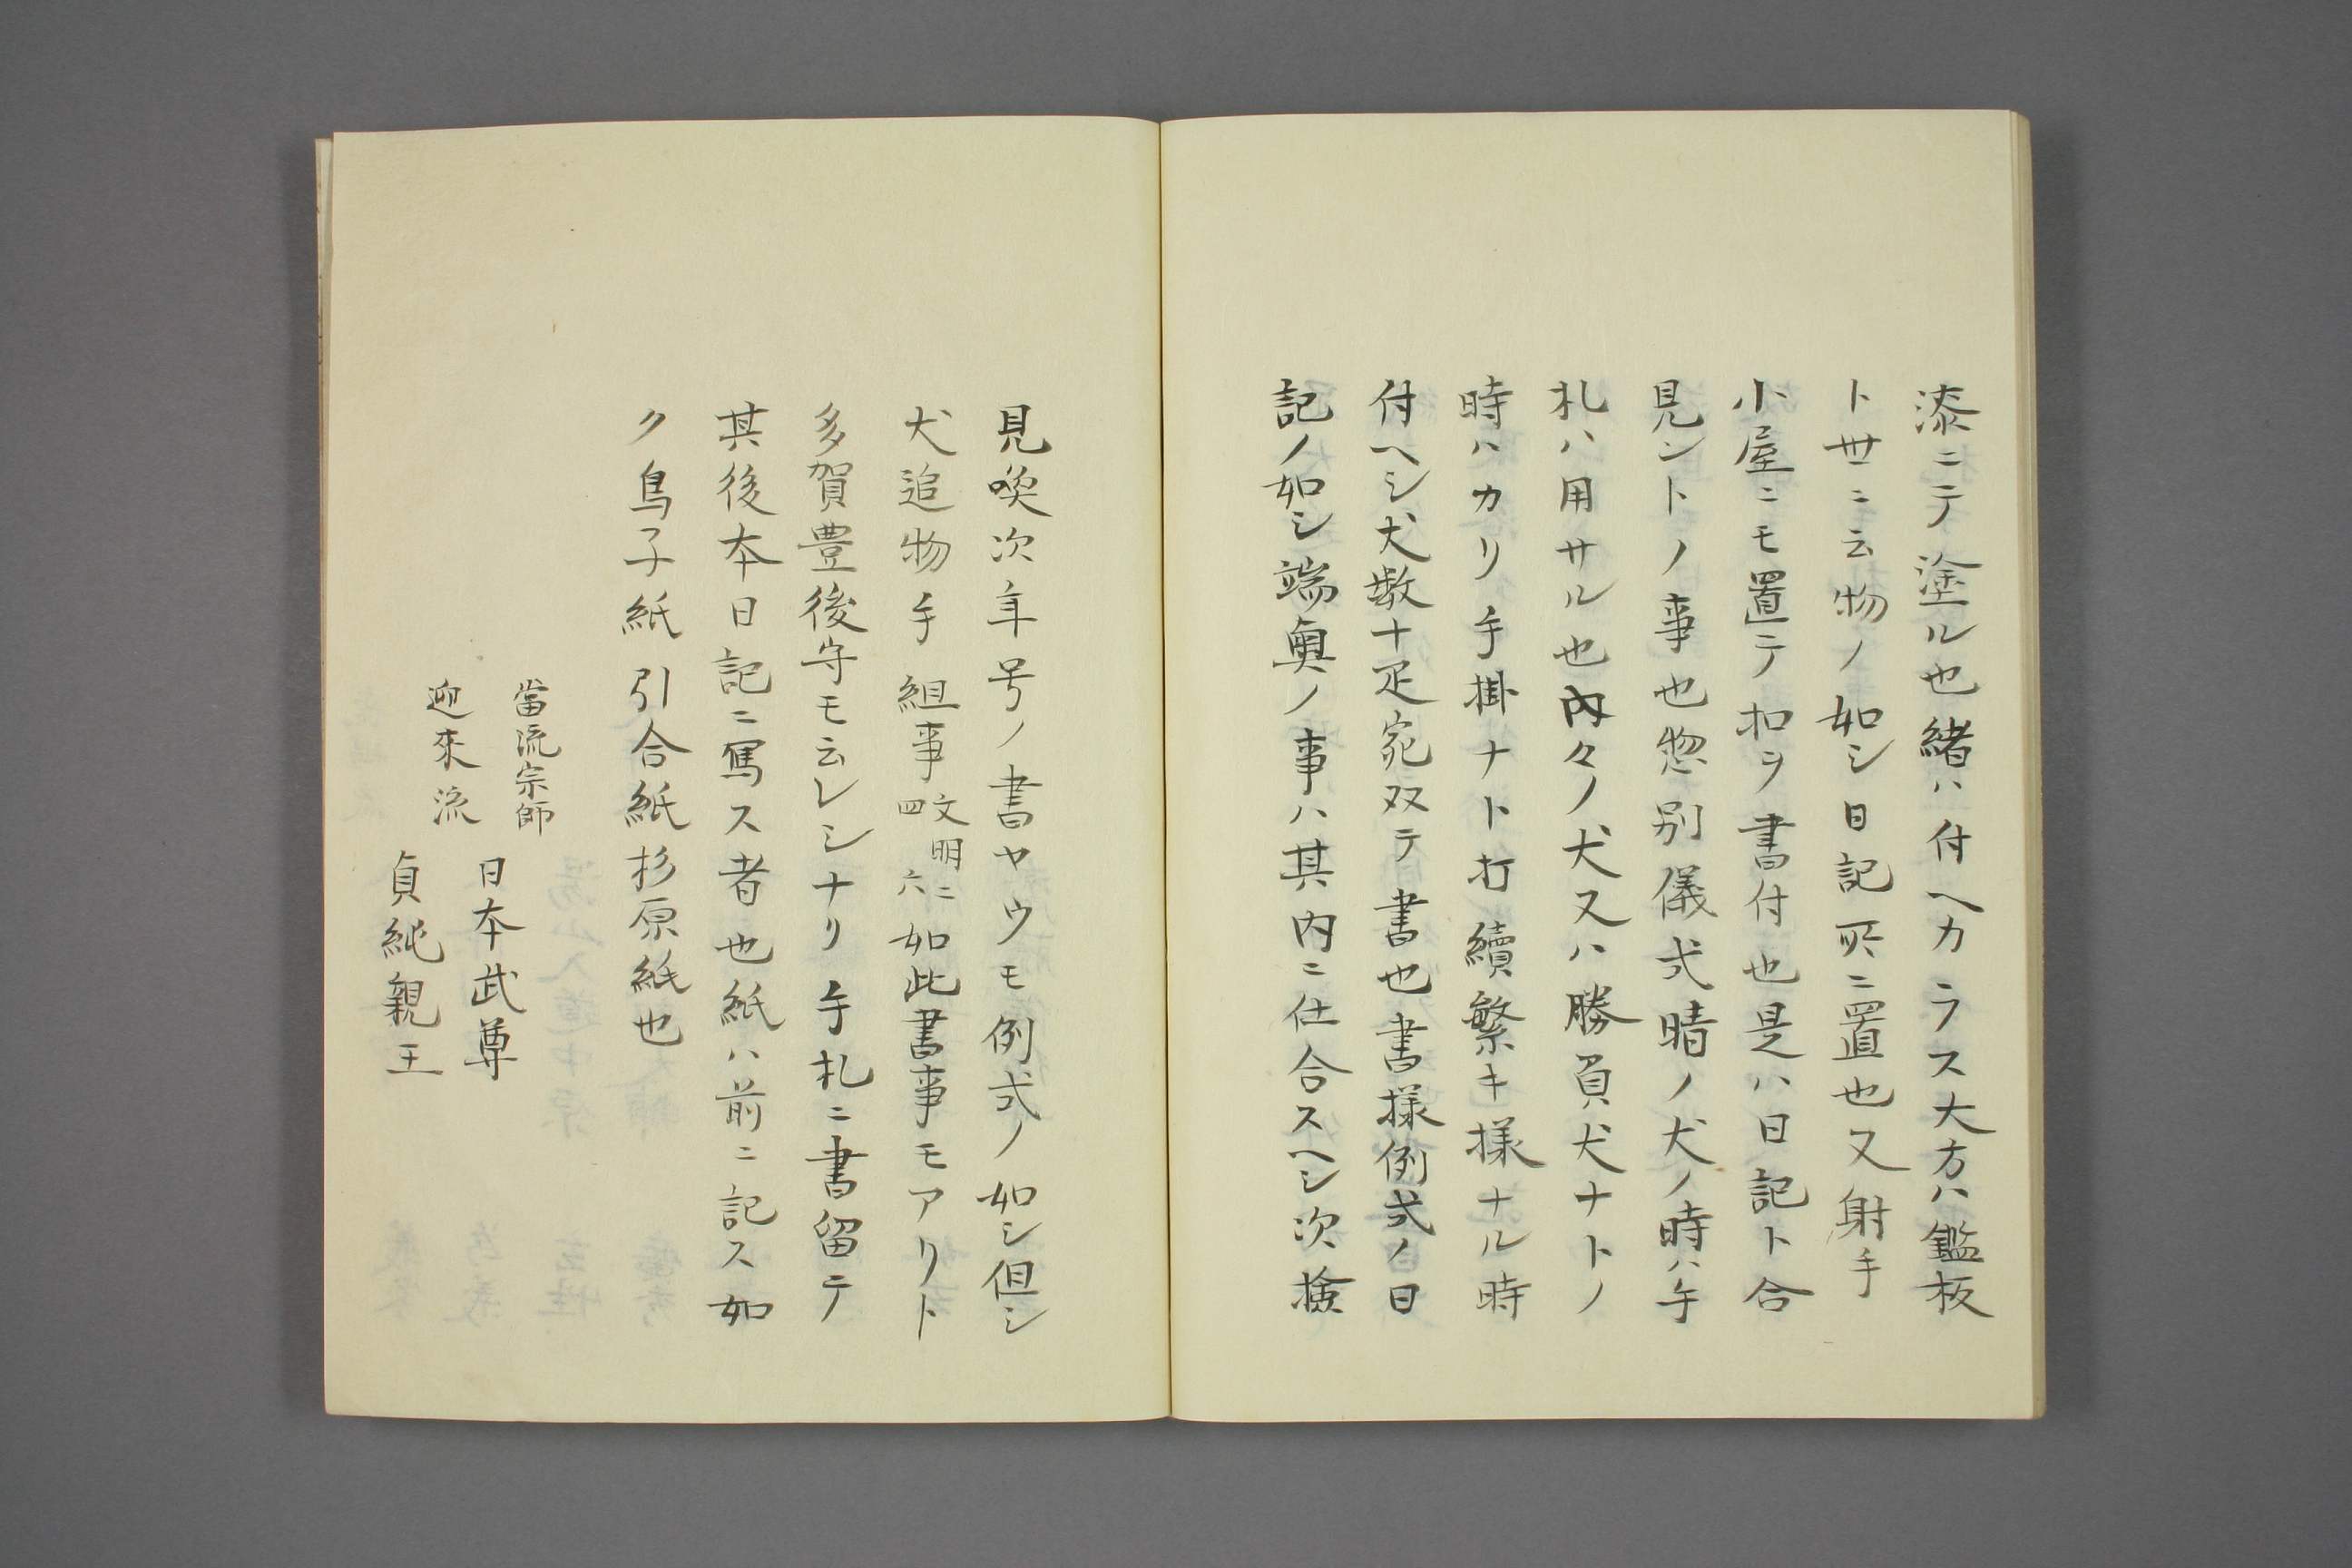 漆ニテ塗ル也緒ハ付ヘカラス大方ハ鑑板
ト丗ニ云物ノ如シ日記所ニ置也又射手
小屋ニモ置テ扣ヲ書付也是ハ日記ト合
見ントノ事也惣別儀式晴ノ犬ノ時ハ手
札ハ用サル也内々ノ犬又ハ勝負犬ナトノ
時ハカリ手掛ナト打續繁キ様ナル時
付ヘシ犬数十疋宛双テ書也書様例式ノ日
記ノ如シ端奥ノ事ハ其内ニ仕合スヘシ次検
見喚次年号ノ書ヤウモ例式ノ如シ但シ
犬追物手組事文明二四六如此書事モアリト
多賀豊後守モ云レシナリ手札ニ書留テ
其後本日記ニ写ス者也紙ハ前ニ記ス如
ク鳥子紙引合紙杉原紙也
當流宗師
日本武尊
迎來流
貞純親王